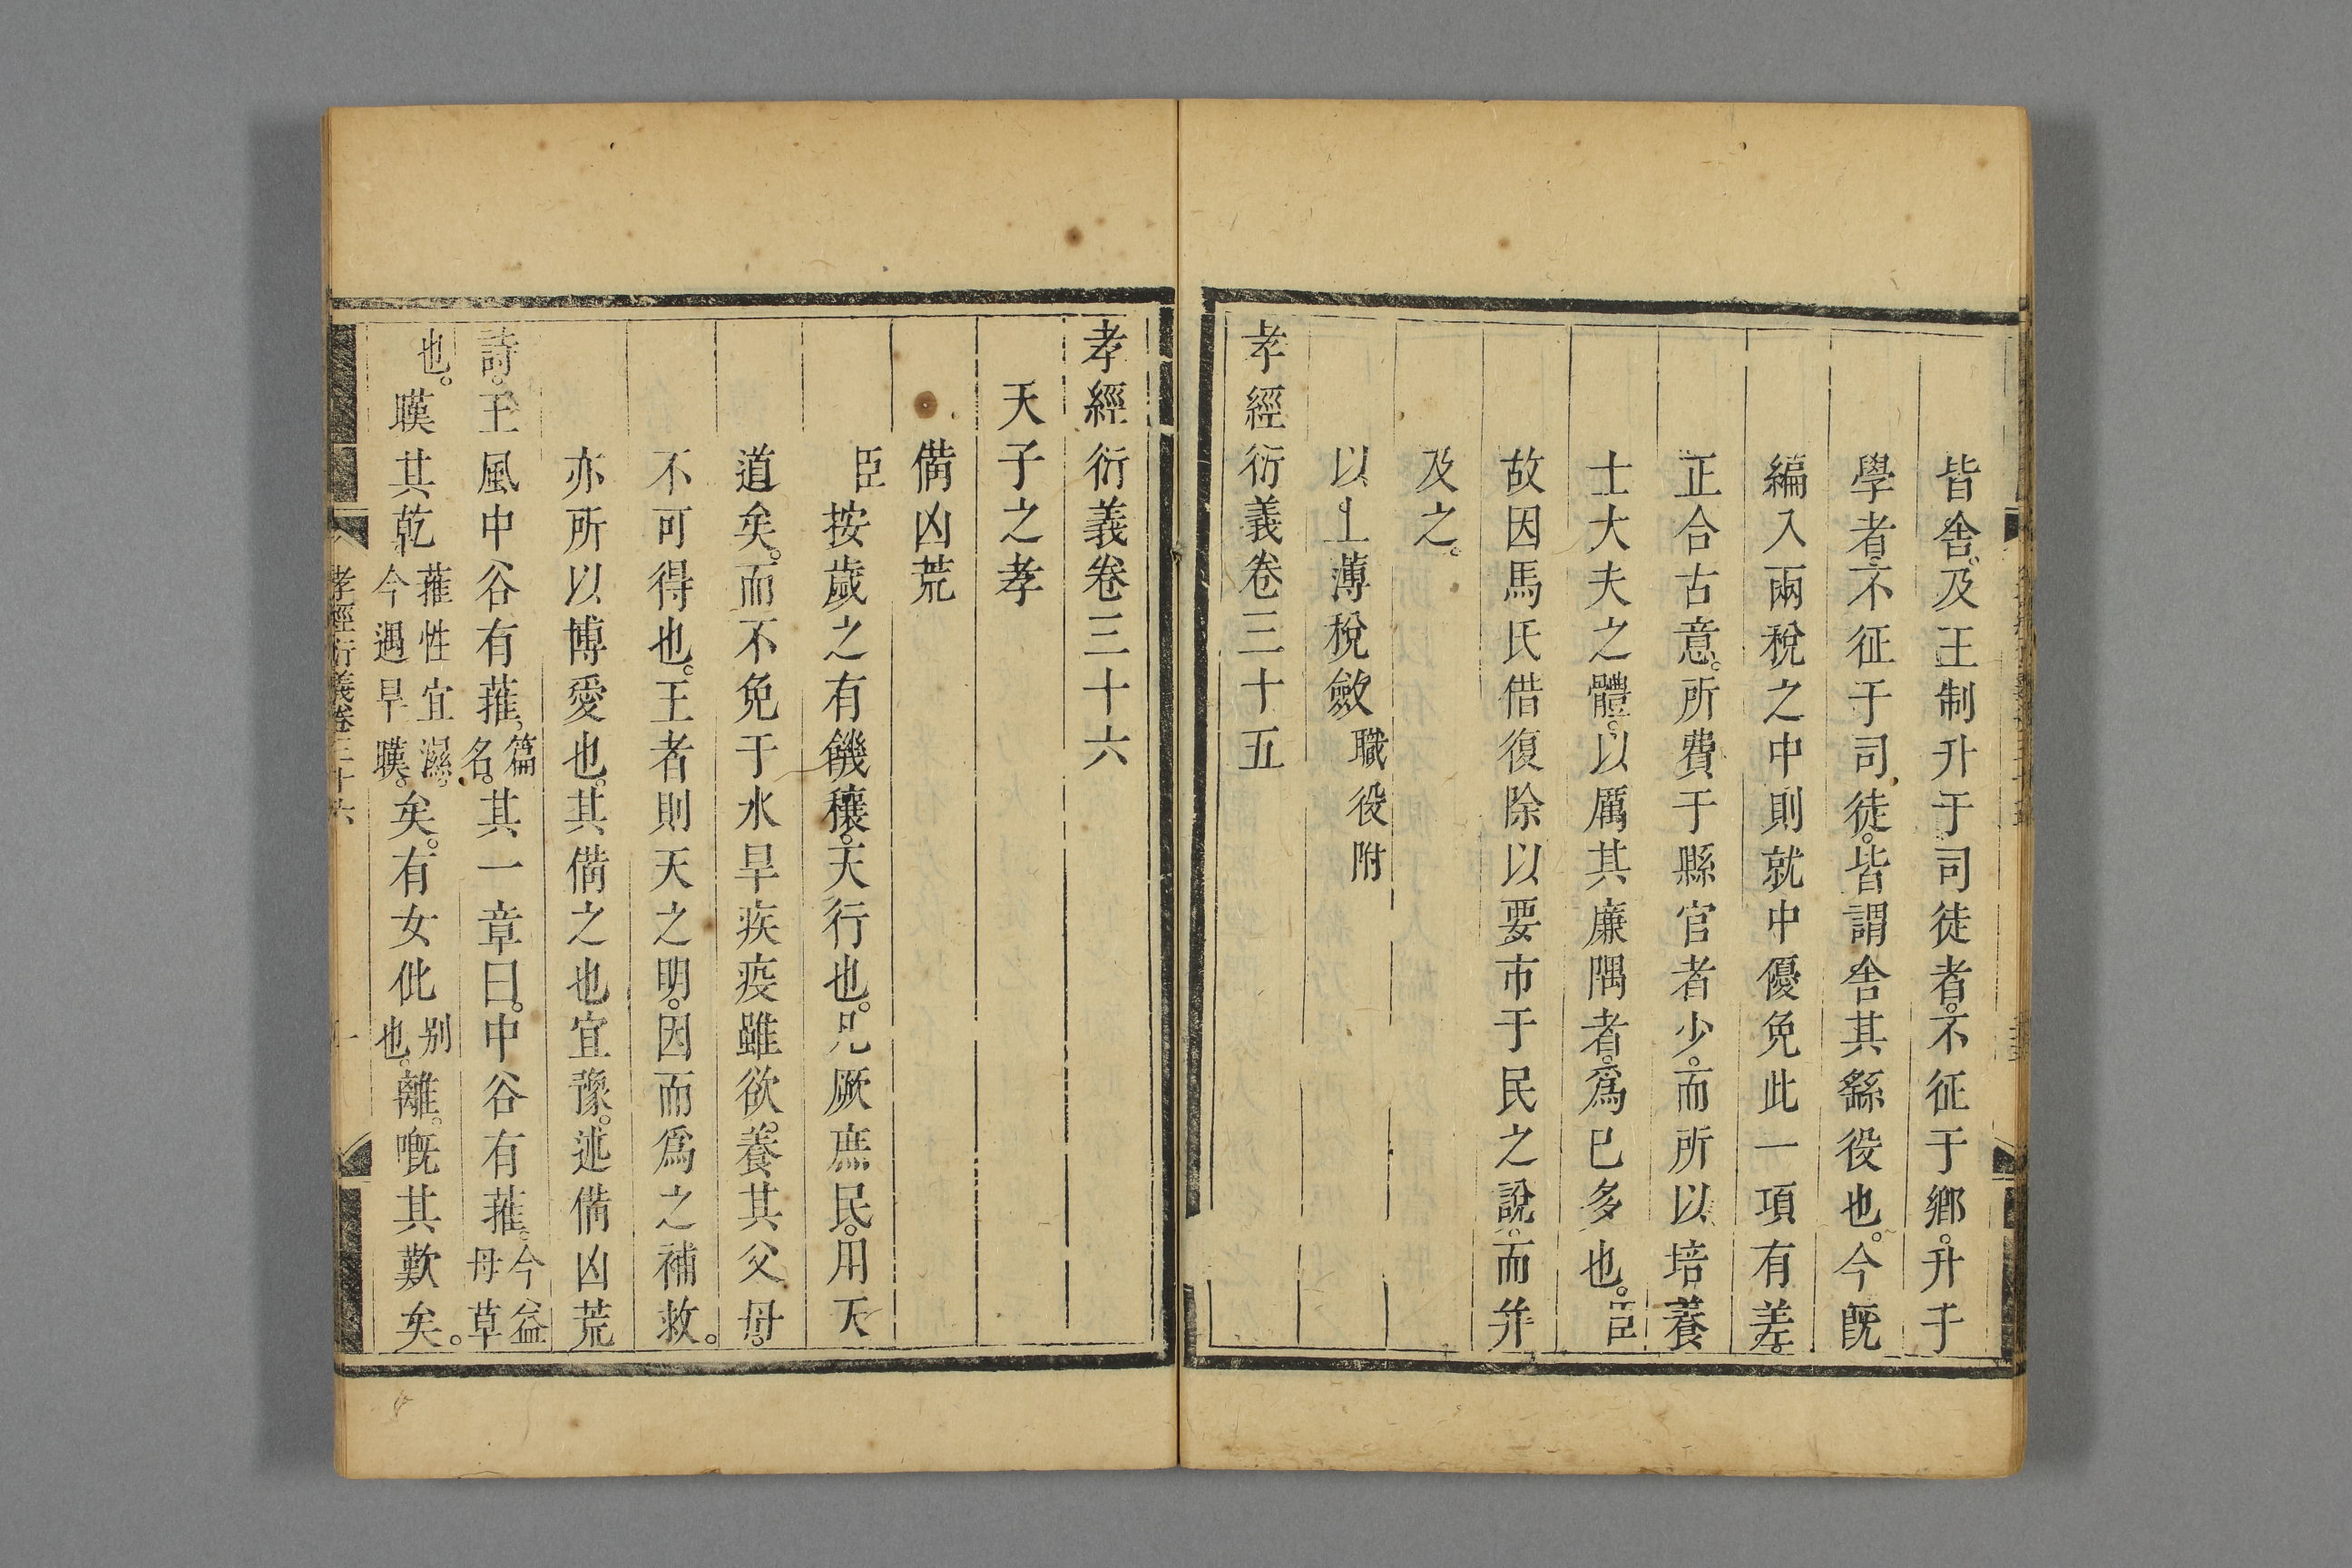 皆舎。及王制升于司徒者。不征于鄉。升于
學者。不征于司徒。皆謂舎其繇役也。今旣
編入兩稅之中則就中優免此一項有差。
正合古意。所費于縣官者少。而所以培養
士大夫之體。以厲其廉隅者。爲已多也。臣
故因馬氏借復除以要市于民之說。而幷
及之。
以上薄稅斂職役附
孝經衍義卷三十五
孝經衍義卷三十六
天子之孝
備凶荒
臣按歲之有饑穰。天行也。凡厥庶民。用天
道矣。而不免于水旱疾疫雖欲養其父母。
不可得也。王者則天之明。因而爲之補救。
亦所以博愛也。其備之也宜豫。述備凶荒
詩。王風中谷有蓷。篇名。其一章曰。中谷有蓷。今益母草
也。暵其乾蓷性宜濕。今遇旱暵。矣。有女仳别也。離。嘅其歎矣。
孝經衍義卷三十六 一